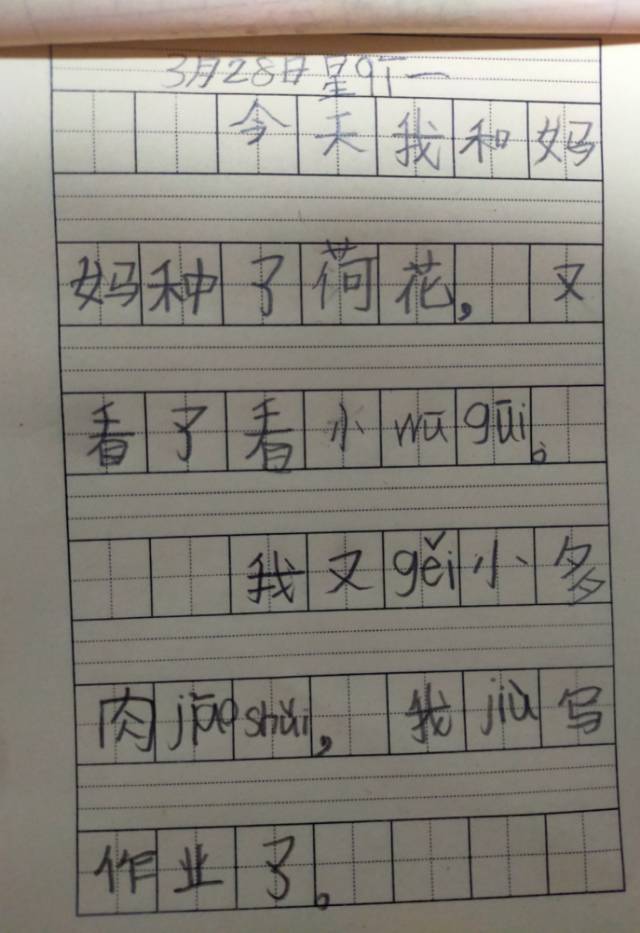 3月28日星期一
今天我和妈
妈种了荷花，又
看了看小wūgūi。
我又gěi小多
肉jiāoshǔi，我jiù写
作业了。